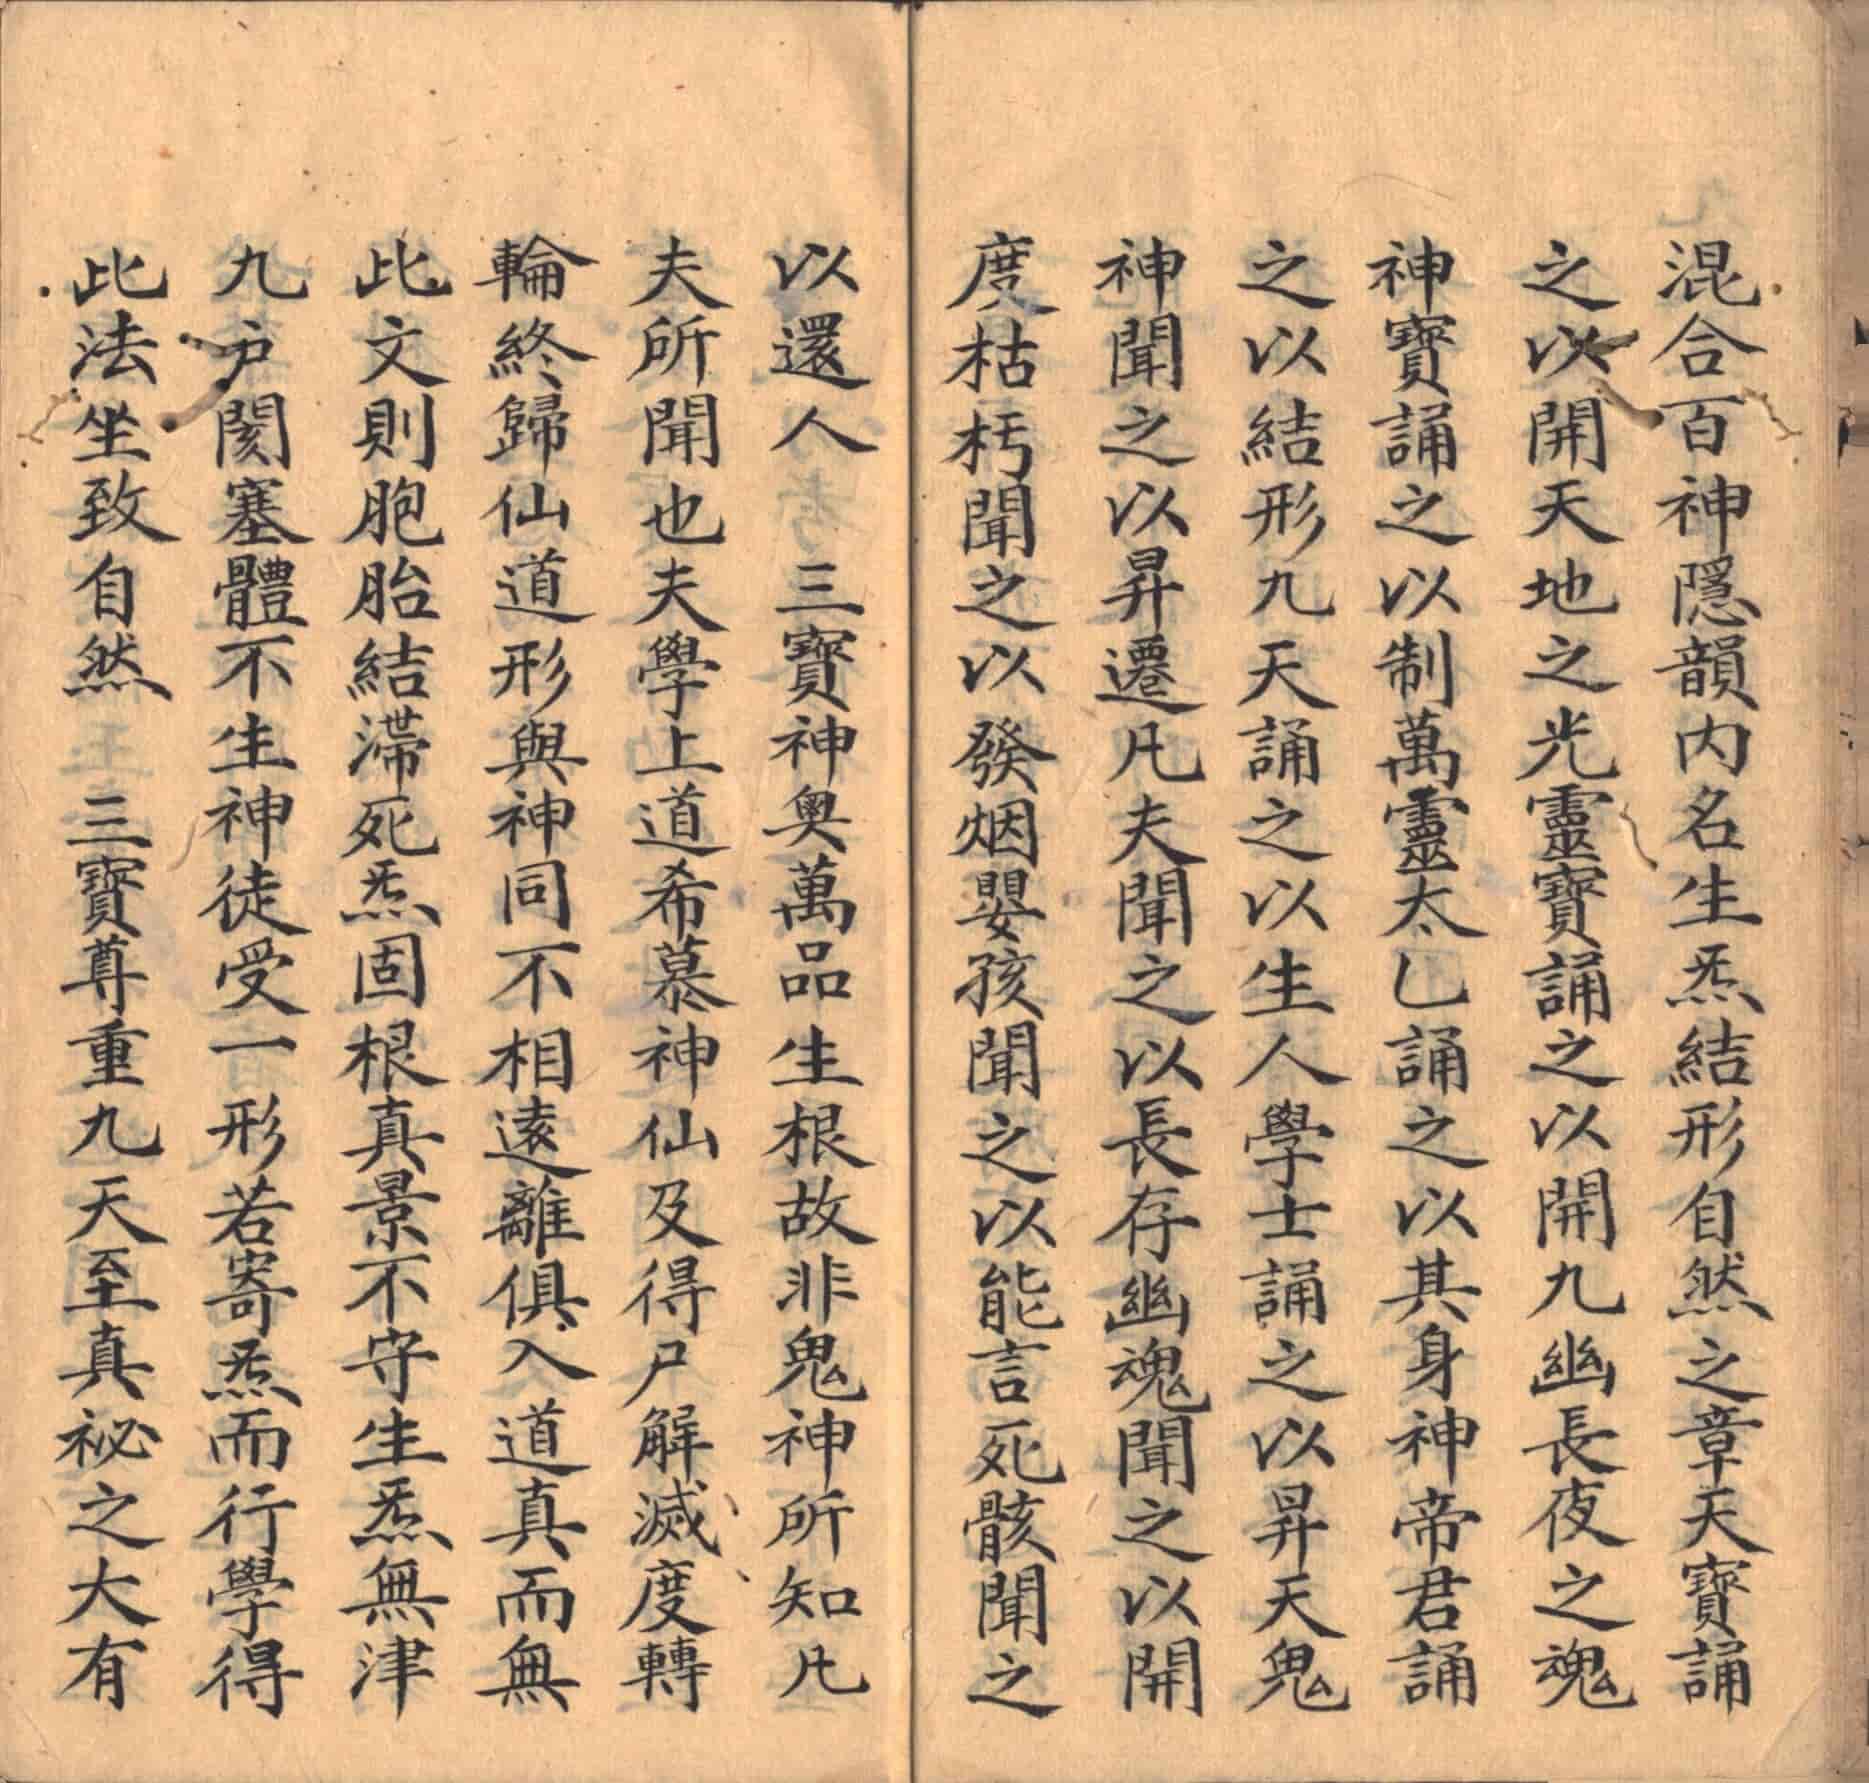 混合百神隱韻内名生炁結形自然之章天寶誦
之以開天地之光靈寶誦之以開九幽長夜之魂
神寶誦之以制萬靈太乚誦之以其身神帝君誦
之以結形九天誦之以生人學士誦之以昇天鬼
神聞之以昇遷凡夫聞之以長存幽魂聞之以開
度枯朽聞之以發烟嬰孩聞之以能言死骸聞之
以還人 三寶神奥萬品生根故非鬼神所知凡
夫所聞也夫學上道希慕神仙及得尸解滅度轉
輪終歸仙道形與神同不相遠離俱入道真而無
此文則胞胎結滯死炁固根真景不守生炁無津
九户閡塞體不生神徒受一形若寄炁而行學得
此法坐致自然 三寶尊重九天至真祕之大有